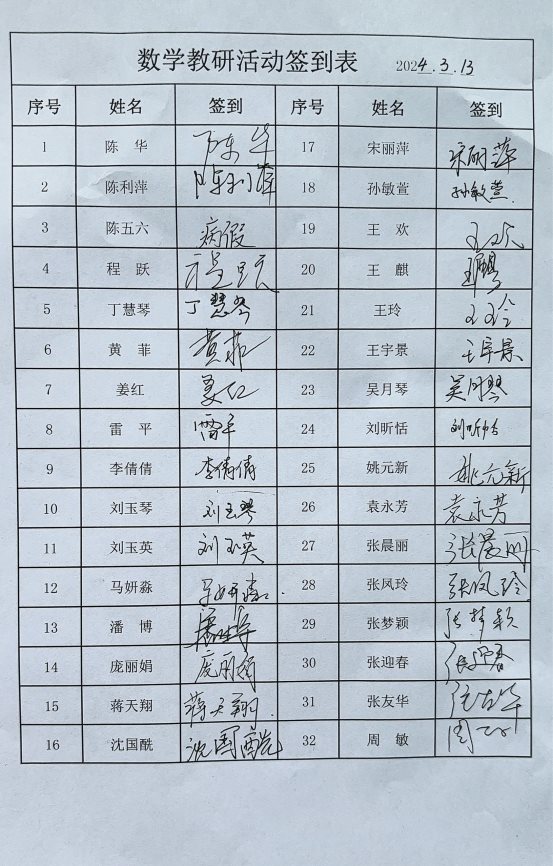 数学教研活动签到表 2024.3.13
序号 姓名 签到 序号 姓名 签到
1 陈 华 陈华 17 宋丽萍 宋丽萍
2 陈利萍 陈利萍 18 孙敏萱 孙敏萱
3 陈五六 病假 19 王 欢 王欢
4 程 跃 程跃 20 王 麒 王麒
5 丁慧琴 丁慧琴 21 王玲 王玲
6 黄 菲 黄菲 22 王宇景 王宇景
7 姜红 姜红 23 吴月琴 吴月琴
8 雷 平 雷平 24 刘昕恬 刘昕恬
9 李倩倩 李倩倩 25 姚元新 姚元新
10 刘玉琴 刘玉琴 26 袁永芳 袁永芳
11 刘玉英 刘玉英 27 张晨丽 张晨丽
12 马妍淼 马妍淼 28 张凤玲 张凤玲
13 潘 博 潘博 29 张梦颖 张梦颖
14 庞丽娟 庞丽娟 30 张迎春 张迎春
15 蒋天翔 蒋天翔 31 张友华 张友华
16 沈国酰 沈国酰 32 周 敏 周敏